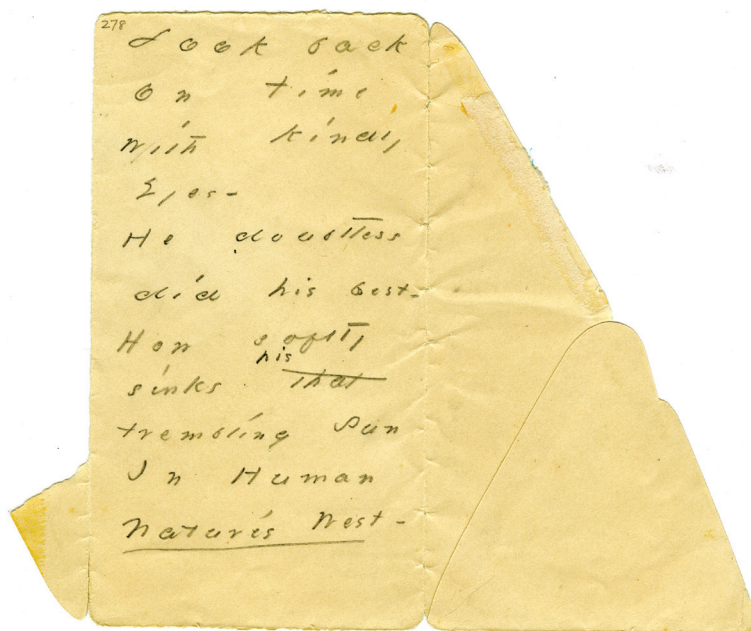 278
Look back
On time
With kindly
Eyes -
He doubtless
did his best -
How softly
his
sinks that
trembling Sun
In Human
Nature's West -